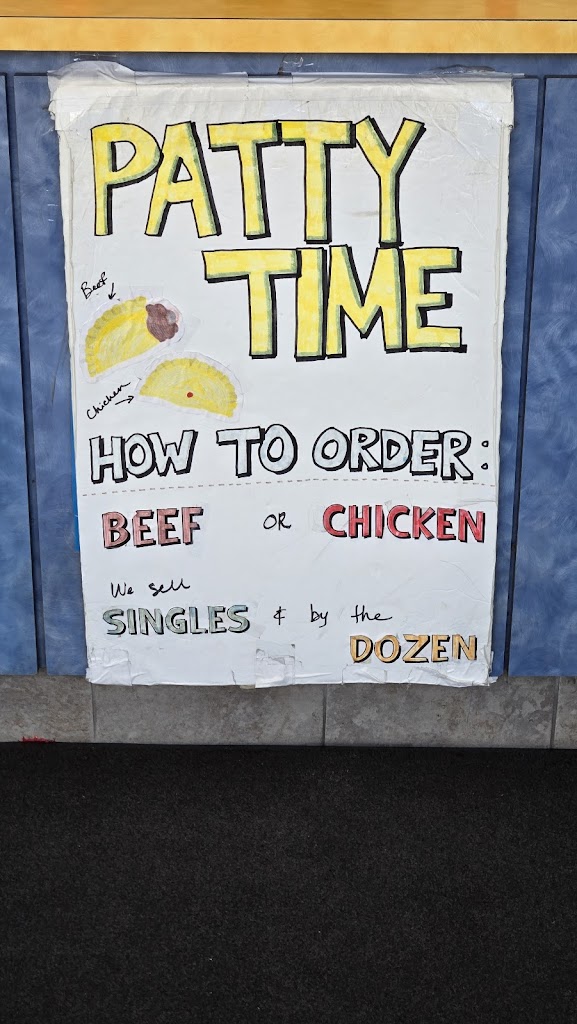 PATTY
TIME
Beef
Chicken
HOW TO ORDER:
BEEF OR CHICKEN
We sell
SINGLES & by the
DOZEN